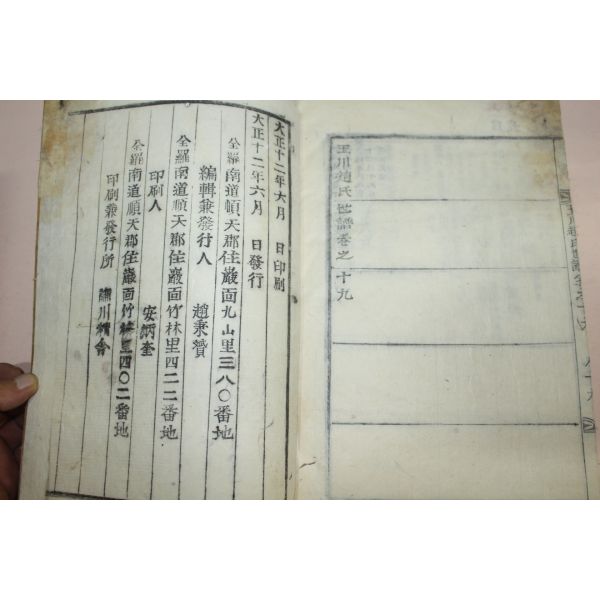 玉川趙氏世譜卷之十九
大正十二年六月　日印刷
大正十二年六月　日發行
全羅南道順天郡住巖面九山里三八〇番地
編輯兼發行人　趙秉濱
全羅南道順天郡住巖面竹林里四二二番地
印刷人　安炳奎
全羅南道順天郡住巖面竹林里四〇二番地
印刷兼發行所